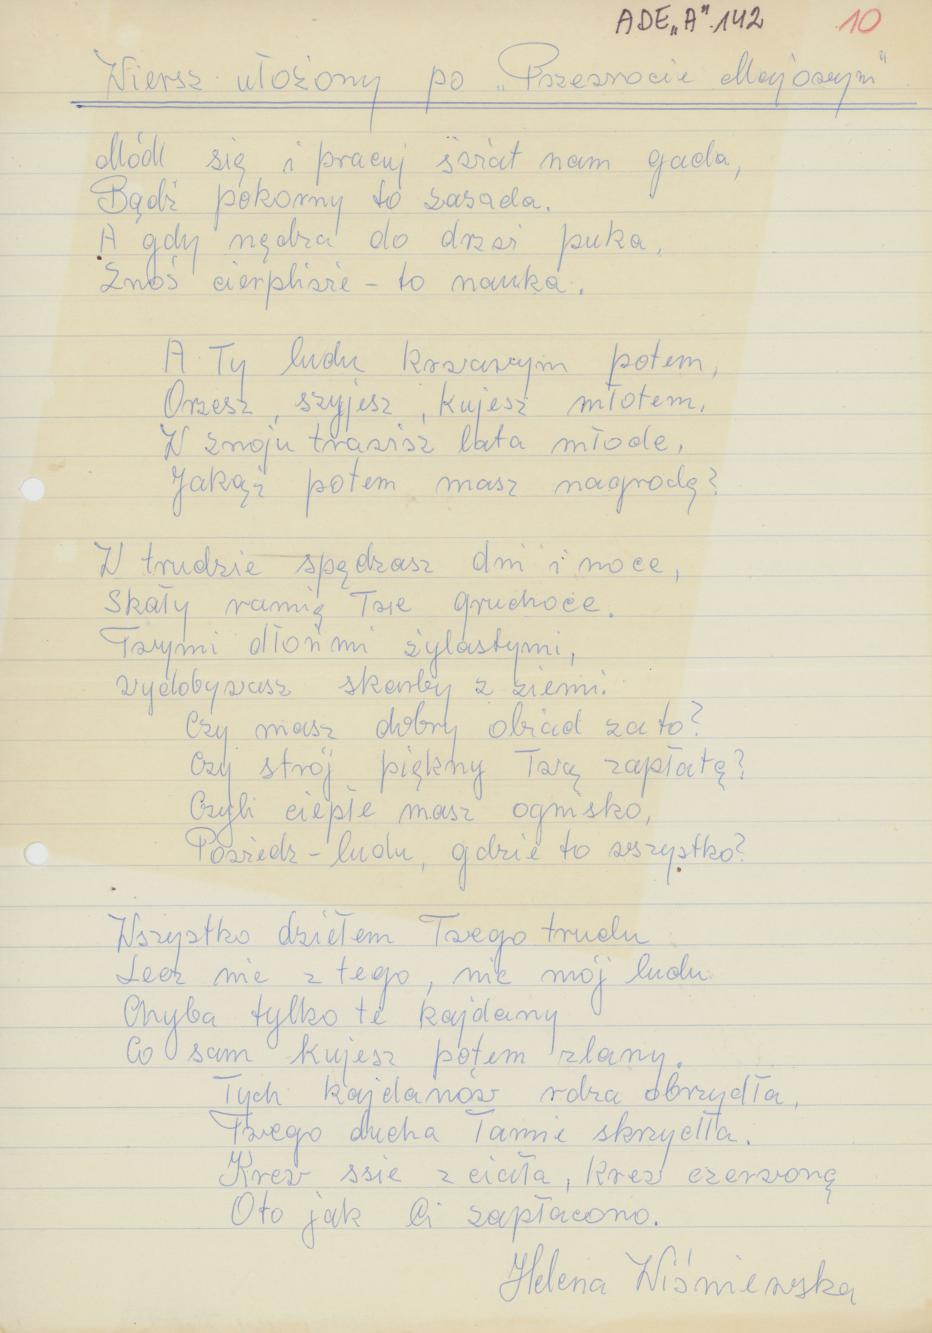 ADE„A".142 10
Wiersz ułożony po „Przewrocie Majowym"
Módl się i pracuj świat nam gada,
Bądź pokorny to zasada.
A gdy nędza do drzwi puka,
Znoś cierpliwie – to nauka.
A Ty ludu krwawym potem,
Orzesz, szyjesz, kujesz młotem,
W znoju trawisz lata młode,
Jakąż potem masz nagrodę?
W trudzie spędzasz dni i noce,
Skały ramię Twe gruchoce.
Twymi dłońmi żylastymi,
wydobywasz skarby z ziemi.
Czy masz dobry obiad za to?
Czy strój piękny Twą zapłatę?
Czyli ciepłe masz ognisko,
Powiedz – ludu, gdzie to wszystko?
Wszystko dziełem Twego trudu
Lecz nic z tego, nic mój ludu
Chyba tylko te kajdany
Co sam kujesz potem zlany.
Tych kajdanów rdza obrzydła,
Twego ducha łamie skrzydła.
Krew ssie z ciała, krew czerwoną
Oto jak Ci zapłacono.
Helena Wiśniewska